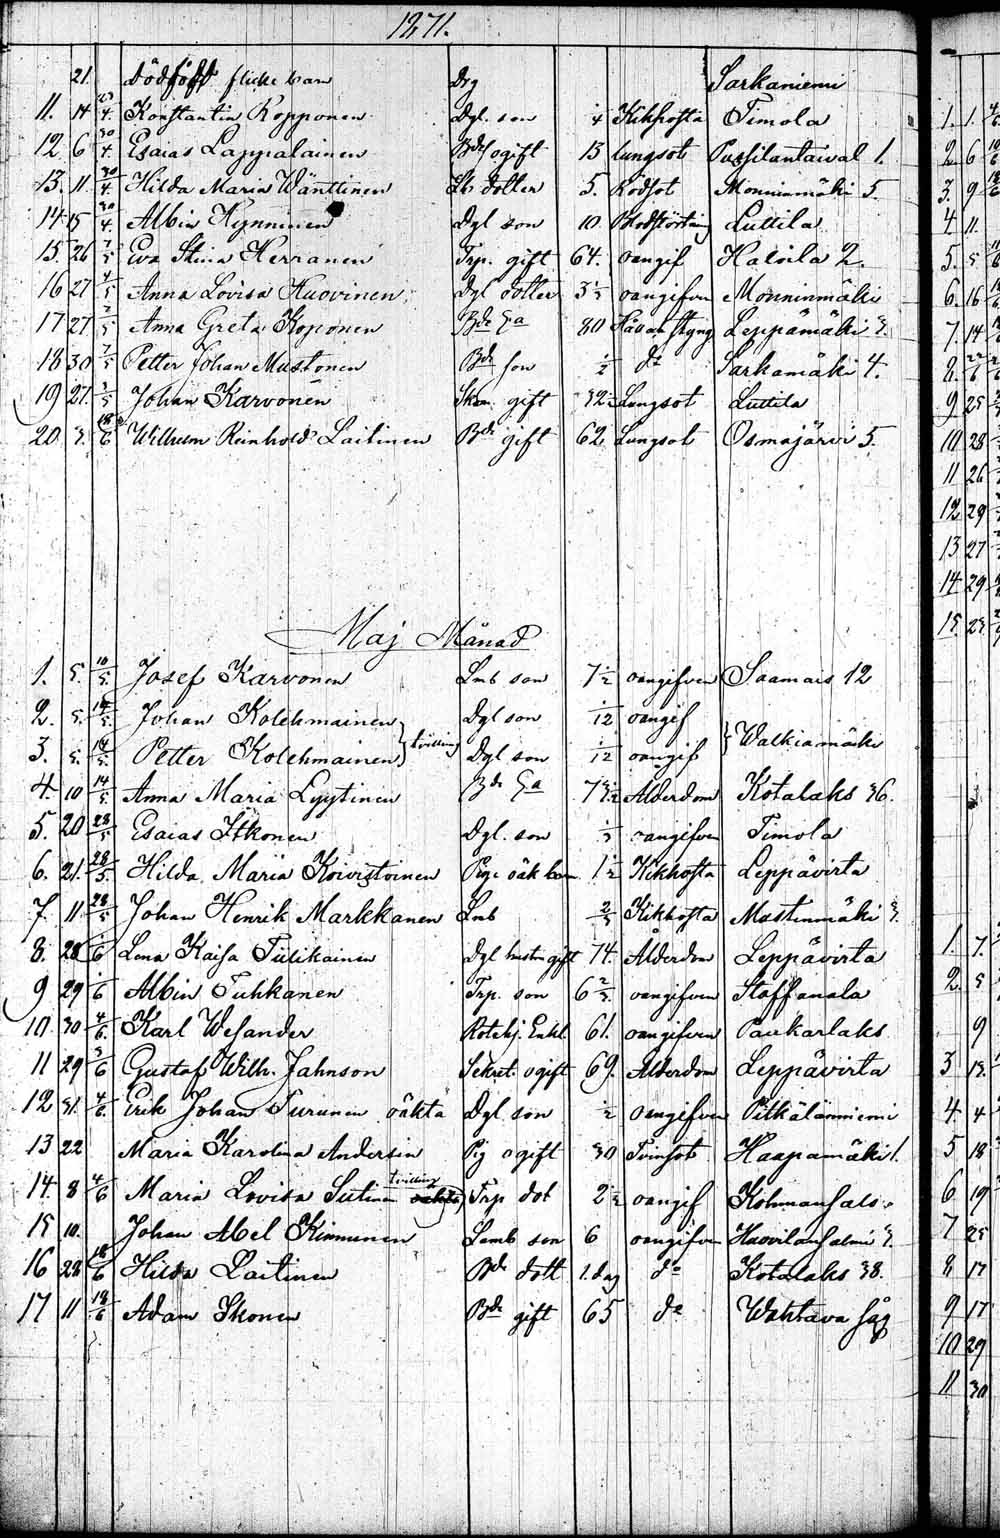 1871.
21. Dödfödd flicke barn Drg Sarkaniemi
11. 14 23/4. Konstantin Ropponen Dgl. son 1/4 Kikhosta Timola
12. 6 30/4. Esaias Lappalainen Bde ogift 13 lungsot Pussilantaival 1.
13. 11. 30/4. Hilda Maria Wänttinen Lb dotter 5. Rödsot Monninmäki 5.
14 15 30/4. Albin Hynninen Dgl son 10 Blodstörtning Luttila
15. 26 7/5 Eva Stina Herranen Trp. gift 64. oangif Hatsila 2.
16 27 4/5 Anna Lovisa Huovinen Dgl dotter 3 1/2 oangifven Monninmäki
17 27 2/5 Anna Greta Koponen Bde Ea 80 Håll o styng Leppämäki 3.
18 30 7/5 Petter Johan Mustonen Bde son 1/2 do Sarkamäki 4.
19 27. 3/5 Johan Karvonen Skom. gift 32 1/2 Lungsot Luttila
20 3. 18/6 Wilhelm Reinhold Laitinen Bde gift 62 Lungsot Osmajärvi 5.
Maj Månad
1. 5. 10/5. Josef Karvonen Lmb son 7 1/2 oangifven Saamais 12
2. 5. 14/5. Johan Kolehmainen Dgl son 1/12 oangif
3. 5. 14/5. Petter Kolehmainen tvilling Dgl son 1/12 oangif Walkiamäki
4. 10 14/5 Anna Maria Lyytinen Bde Ea 73 1/2 Ålderdom Kotalaks 36.
5. 20 28/5 Esaias Itkonen Dgl. son 1/3 oangifven Timola
6. 21. 28/5. Hilda Maria Koivistoinen Pigs oäk barn 1 1/2 Kikhosta Leppävirta
7. 11 28/5 Johan Henrik Markkanen Lmb 2/3 Kikhosta Mustinmäki 3.
8. 28 1/6 Lena Kaisa Tiilikainen Dgl hustru gift 74. Ålderdom Leppävirta
9 29 1/6 Albin Tuhkanen Trp. son 6 2/3. oangifven Staffanala
10. 30 4/6. Karl Wesander Rotehj. Enkl. 61. oangifven Paukarlaks
11 29 3/6 Gustaf Wilh. Jahnson Sekret. ogift 69. Ålderdom Leppävirta
12 31. 4/6. Erik Johan Turunen oäkta Dgl son 1/2 oangifven Pitkälänniemi
13 22 Maria Karolina Andersin Pig ogift 30 Tvinsot Haapamäki 1.
14. 8 4/6 Maria Lovisa Sutinen tvilling Trp dot 2 1/2 oangif Kohmansalo
15 10. Johan Abel Kinnunen Lamb son 6 oangifven Huovilansalmi 3.
16 28 18/6 Hilda Laitinen Bde dott 1. dag do Kotalaks 38.
17 11 18/6 Adam Ikonen Bde gift 65 do Wahtava såg